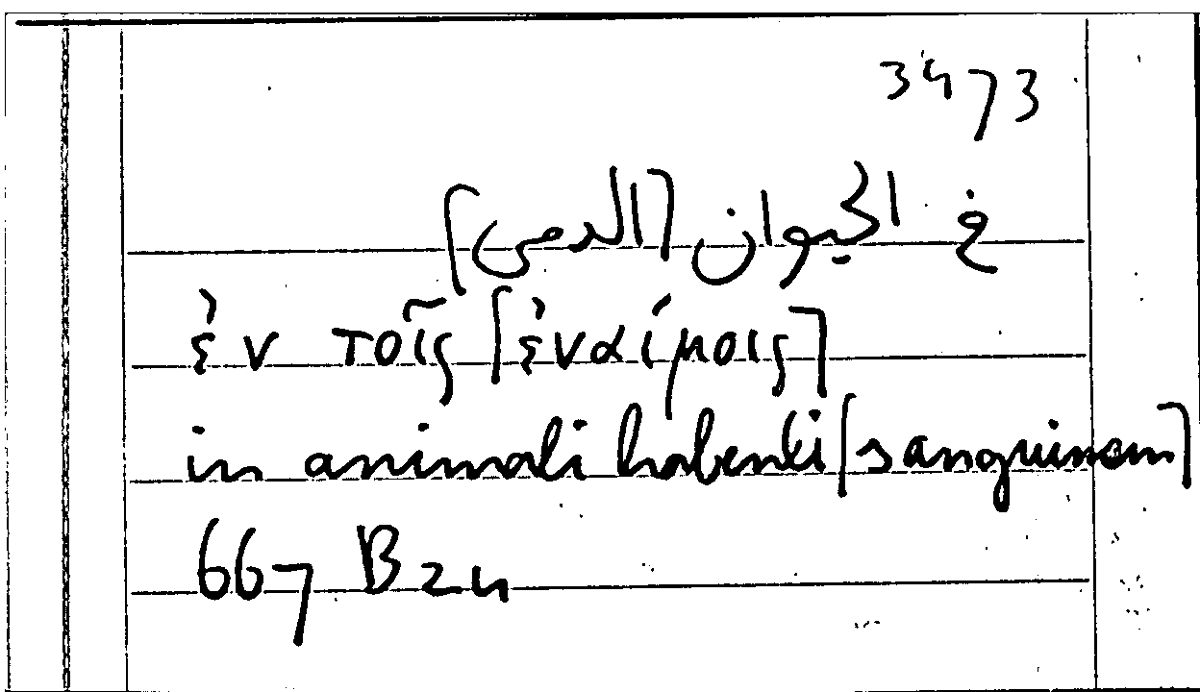 3473
في الحيوان ⌈الدمى⌉
ἐν τοῖς ⌈ἐναίμοις⌉
in animali habenti ⌈sanguinem⌉
667 B 24